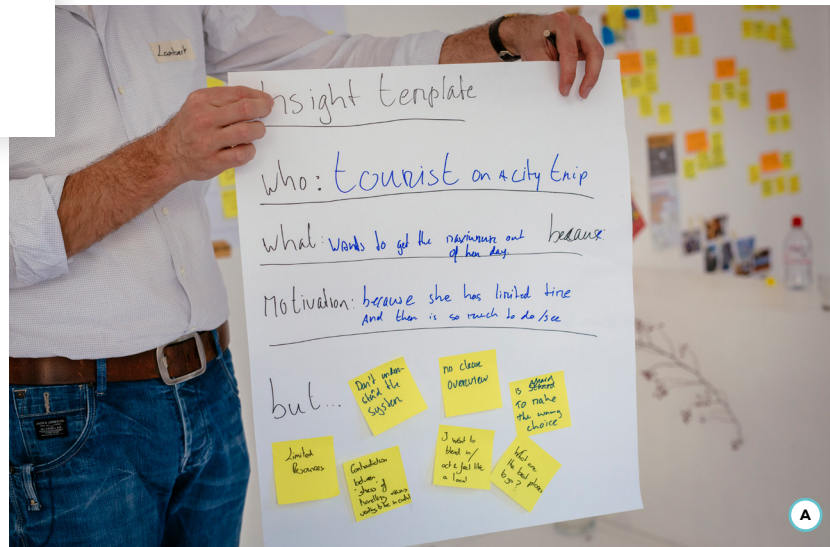 Lambert
Insight template
who: tourist on a city trip
what: wants to get the maximum out because
of her day.
Motivation: because she has limited time
And there is so much to do/see
but...
Don't under-
stand the
system
no clear
overview
is afraid
to make
the wrong
choice
Limited
Resources
Contradiction
between
stress of
travelling
I want to
blend in/
act & feel like
a local
What are
the best places
to go?
A